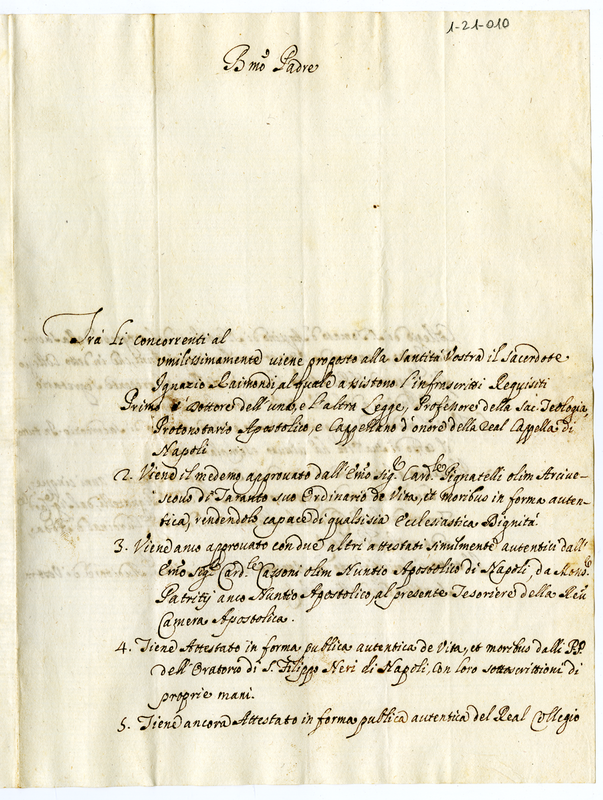 1-21-010
Bmo Padre
Trà li concorrenti al
vmilissimamente viene proposto alla Santità Vostra il Sacerdote
Ignazio Raimondi, al quale assistono l'infrascritti Requisiti
Primo è Dottore dell'una, e l'altra Legge, Professore della Sac. Teologia,
Protonotario Apostolico, e Cappellano d'onore della Real Cappella di
Napoli
2. Viene il medemo approvato dall'Emo Sigr Cardle Pignatelli olim Arcive-
scovo di Taranto suo Ordinario de Vita, et moribus in forma auten-
tica, rendendolo capace di qualsisia Ecclesiastica Dignità
3. Viene anco approvato con due altri attestati similmente autentici dall'
Emo Sigr Cardle Cassoni olim Nuntio Apostolico di Napoli, da Monsr
Patritij anco Nuntio Apostolico, al presente Tesoriere della Reu
Camera Apostolica.
4. Tiene Attestato in forma publica autentica de Vita, et moribus dalli PP.
dell'Oratorio di S. Filippo Neri di Napoli, con loro sottoscrittioni di
proprie mani.
5. Tiene ancora Attestato in forma publica autentica del Real Collegio